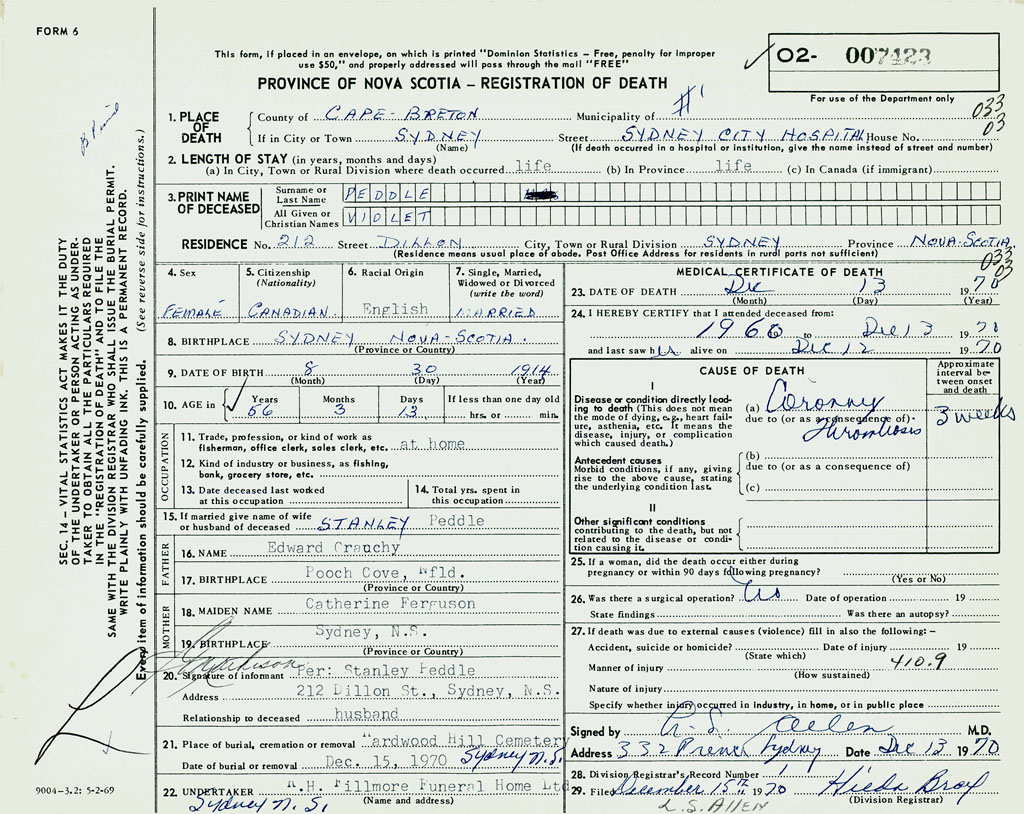 FORM 6
This form, if placed in an envelope, on which is printed "Dominion Statistics – Free, penalty for improper
use $50," and properly addressed will pass through the mail "FREE"
PROVINCE OF NOVA SCOTIA – REGISTRATION OF DEATH
O2- 007423
For use of the Department only
#1
033
03
1. PLACE OF DEATH
County of CAPE-BRETON Municipality of
If in City or Town SYDNEY Street SYDNEY CITY HOSPITAL House No.
(Name) (If death occurred in a hospital or institution, give the name instead of street and number)
2. LENGTH OF STAY (in years, months and days)
(a) In City, Town or Rural Division where death occurred life (b) In Province life (c) In Canada (if immigrant)
3. PRINT NAME OF DECEASED
Surname or Last Name PEDDLE
All Given or Christian Names VIOLET
RESIDENCE No. 212 Street DILLON City, Town or Rural Division SYDNEY Province NOVA-SCOTIA
(Residence means usual place of abode. Post Office Address for residents in rural parts not sufficient)
033
03
4. Sex
FEMALE
5. Citizenship (Nationality)
CANADIAN
6. Racial Origin
English
7. Single, Married, Widowed or Divorced (write the word)
MARRIED
8. BIRTHPLACE SYDNEY NOVA-SCOTIA
(Province or Country)
9. DATE OF BIRTH 8 30 1914
(Month) (Day) (Year)
10. AGE in Years 56 Months 3 Days 13 If less than one day old
hrs. or min.
OCCUPATION
11. Trade, profession, or kind of work as
fisherman, office clerk, sales clerk, etc. at home
12. Kind of industry or business, as fishing,
bank, grocery store, etc.
13. Date deceased last worked
at this occupation
14. Total yrs. spent in
this occupation
15. If married give name of wife
or husband of deceased STANLEY Peddle
FATHER
16. NAME Edward Crauchy
17. BIRTHPLACE Pooch Cove, Nfld.
(Province or Country)
MOTHER
18. MAIDEN NAME Catherine Ferguson
19. BIRTHPLACE Sydney, N.S.
(Province or Country)
20. Signature of informant Per: Stanley Peddle
Address 212 Dillon St., Sydney, N.S.
Relationship to deceased husband
21. Place of burial, cremation or removal Hardwood Hill Cemetery
Date of burial or removal Dec. 15, 1970 Sydney N.S.
22. UNDERTAKER A.H. Fillmore Funeral Home Ltd
(Name and address)
Sydney N.S.
MEDICAL CERTIFICATE OF DEATH
23. DATE OF DEATH Dec 13 1970
(Month) (Day) (Year)
24. I HEREBY CERTIFY that I attended deceased from:
1960 to Dec 13 1970
and last saw her alive on Dec 12 1970
CAUSE OF DEATH
Approximate interval between onset and death
I
Disease or condition directly leading to death (This does not mean the mode of dying, e.g., heart failure, asthenia, etc. It means the disease, injury, or complication which caused death.)
(a) Coronary
due to (or as a consequence of)
Thrombosis
3 weeks
Antecedent causes
Morbid conditions, if any, giving rise to the above cause, stating the underlying condition last.
(b)
due to (or as a consequence of)
(c)
II
Other significant conditions
contributing to the death, but not related to the disease or condition causing it.
25. If a woman, did the death occur either during
pregnancy or within 90 days following pregnancy?
(Yes or No)
26. Was there a surgical operation? No Date of operation 19
State findings Was there an autopsy?
27. If death was due to external causes (violence) fill in also the following: –
Accident, suicide or homicide? Date of injury 19
(State which)
Manner of injury 410.9
(How sustained)
Nature of injury
Specify whether injury occurred in industry, in home, or in public place
Signed by A. S. Allen M.D.
Address 332 Prince Sydney Date Dec 13 1970
28. Division Registrar's Record Number 1
29. Filed December 15th 1970
(Division Registrar)
L.S. ALLEN
SEC. 14 – VITAL STATISTICS ACT MAKES IT THE DUTY
OF THE UNDERTAKER OR PERSON ACTING AS UNDER-
TAKER TO OBTAIN ALL THE PARTICULARS REQUIRED
IN THE "REGISTRATION OF DEATH" AND TO FILE THE
SAME WITH THE DIVISION REGISTRAR WHO SHALL ISSUE THE BURIAL PERMIT.
WRITE PLAINLY WITH UNFADING INK. THIS IS A PERMANENT RECORD.
Every item of information should be carefully supplied. (See reverse side for instructions.)
9004-3.2: 5-2-69